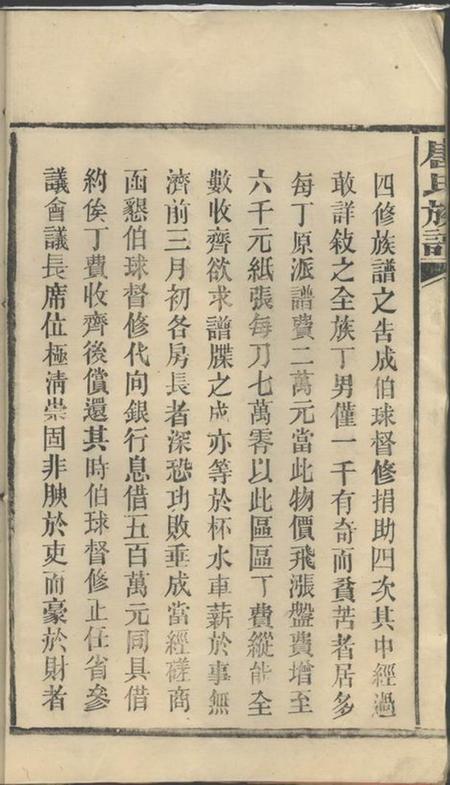 唐氏族譜
四修族譜之告成伯球督修捐助四次其中經過
敢詳敍之全族丁男僅一千有奇而貧苦者居多
每丁原派譜費二萬元當此物價飛漲盤費增至
六千元紙張每刀七萬零以此區區丁費縱能全
數收齊欲求譜牒之成亦等於杯水車薪於事無
濟前三月初各房長者深恐功敗垂成當經磋商
函懇伯球督修代向銀行息借五百萬元同具借
約俟丁費收齊後償還其時伯球督修正任省參
議會議長席位極清崇固非腴於吏而豪於財者